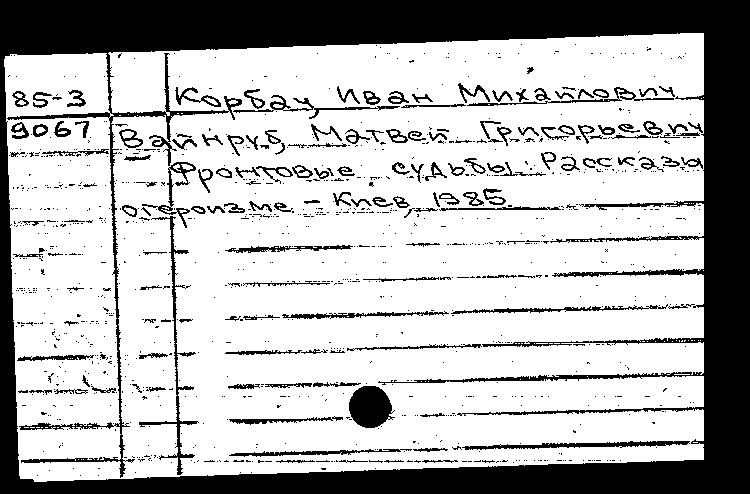 85-3 Корбач, Иван Михайлович
9067 Вайнруб Матвей Григорьевич
Фронтовые судьбы: Рассказы
о героизме - Киев, 1985